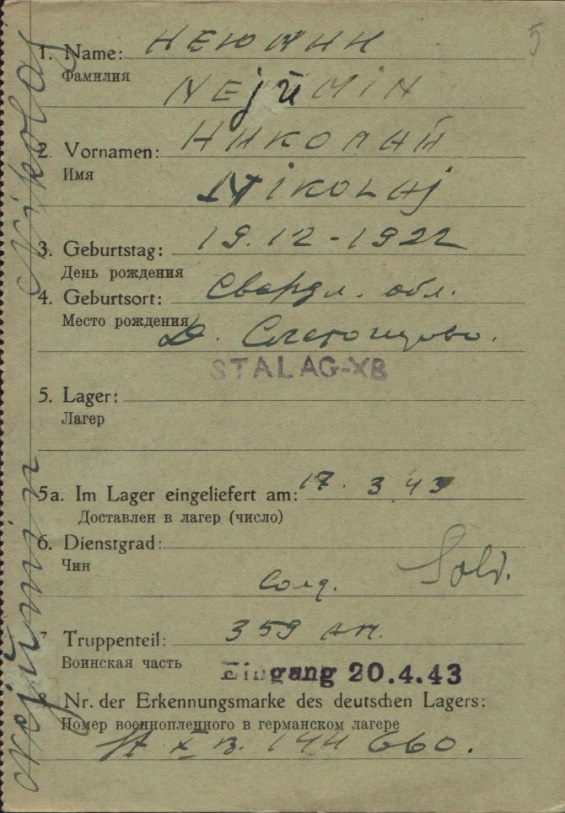 5
1. Name: НЕЮМИН
Фамилия
NEjŭMiN
2. Vornamen: НИКОЛАЙ
Имя
NiKOLAj
3. Geburtstag: 19.12-1922
День рождения
4. Geburtsort: Свердл. обл.
Место рождения
д.
STALAG-XB
5. Lager:
Лагер
5a. Im Lager eingeliefert am: 17. 3 43
Доставлен в лагер (число)
6. Dienstgrad:
Чин
Солд. Sold.
7. Truppenteil: 359 ап.
Воинская часть
Eingang 20.4.43
8. Nr. der Erkennungsmarke des deutschen Lagers:
Номер военнопленного в германском лагере
X B. 144 660.
Nejŭmin Nikolaj